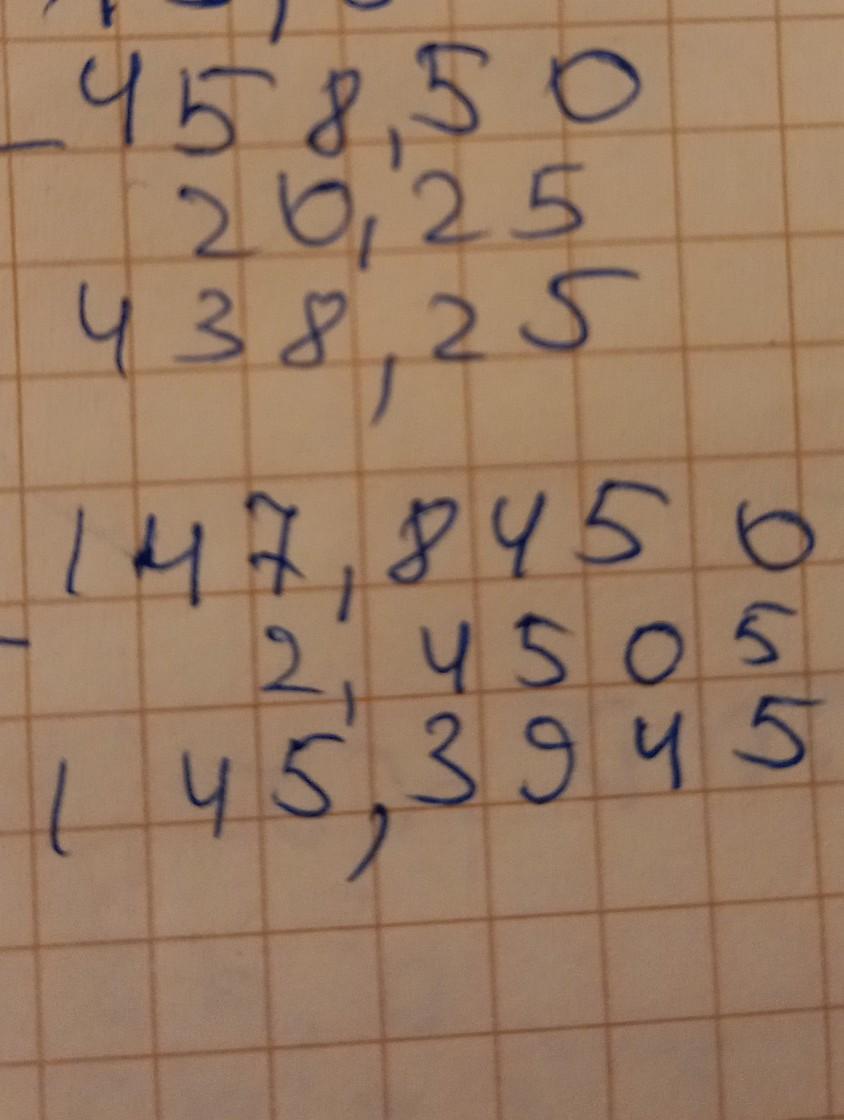 - 458,50
20,25
438,25
147,8450
- 2,4505
145,3945